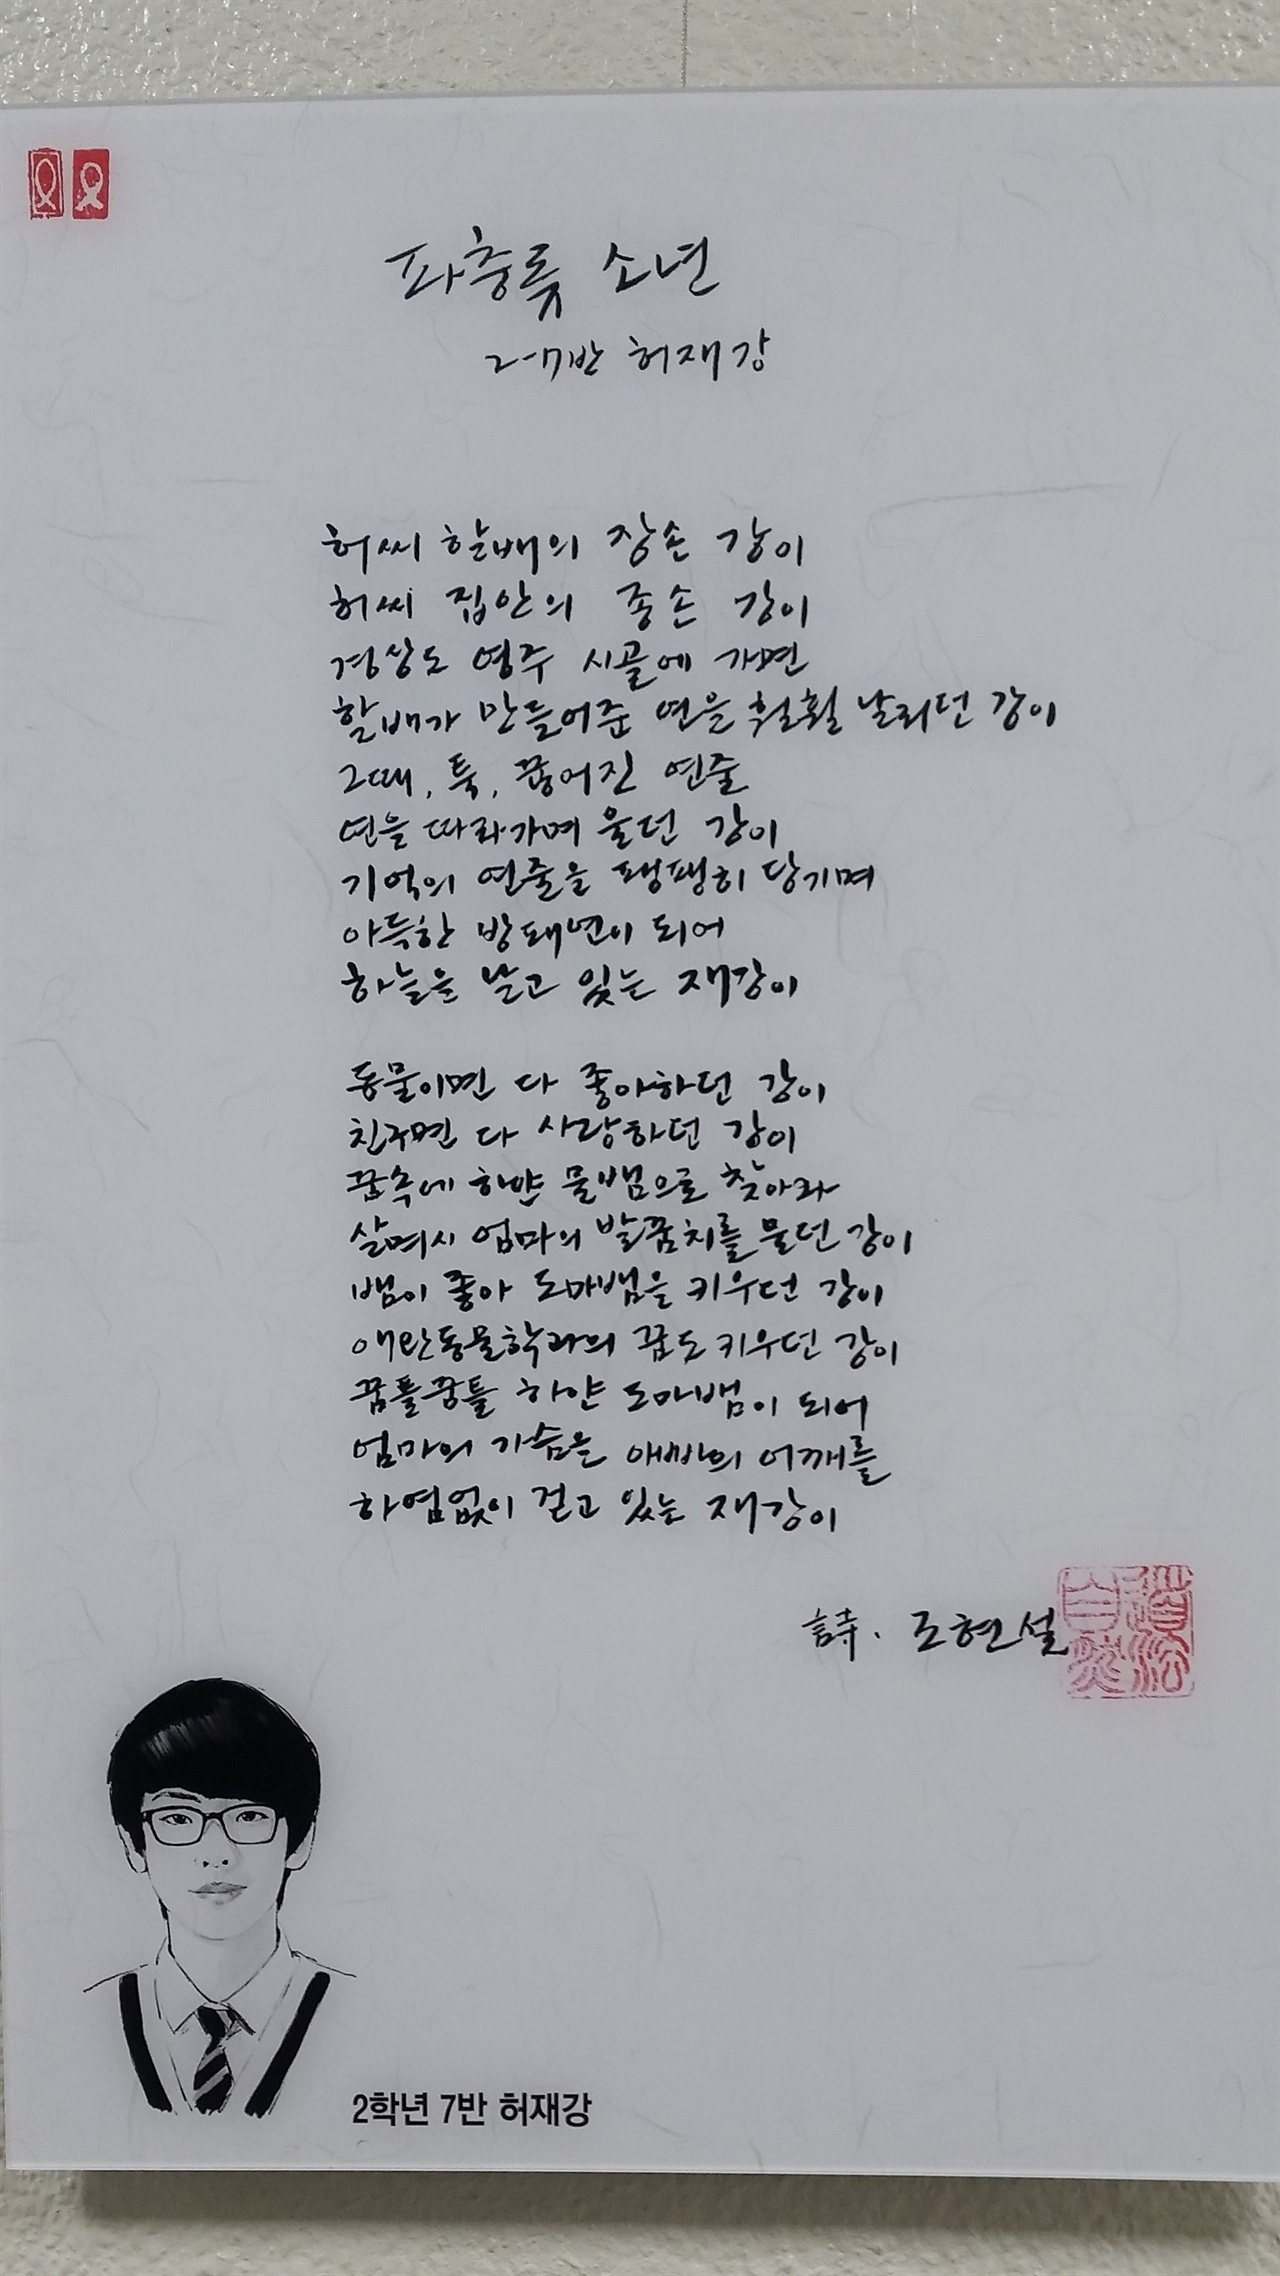 파충류 소년
2-7반 허재강
허씨 할배의 장손 강이
허씨 집안의 종손 강이
경상도 영주 시골에 가면
할배가 만들어준 연을 훨훨 날리던 강이
그때, 툭, 끊어진 연줄
연을 따라가며 울던 강이
기억의 연줄을 팽팽히 당기며
아득한 방패연이 되어
하늘을 날고 있는 재강이
동물이면 다 좋아하던 강이
친구면 다 사랑하던 강이
꿈속에 하얀 물뱀으로 찾아와
살며시 엄마의 발꿈치를 물던 강이
뱀이 좋아 도마뱀을 키우던 강이
애완동물학과의 꿈도 키우던 강이
꿈틀꿈틀 하얀 도마뱀이 되어
엄마의 가슴을 아빠의 어깨를
하염없이 걷고 있는 재강이
詩. 조현설
2학년 7반 허재강